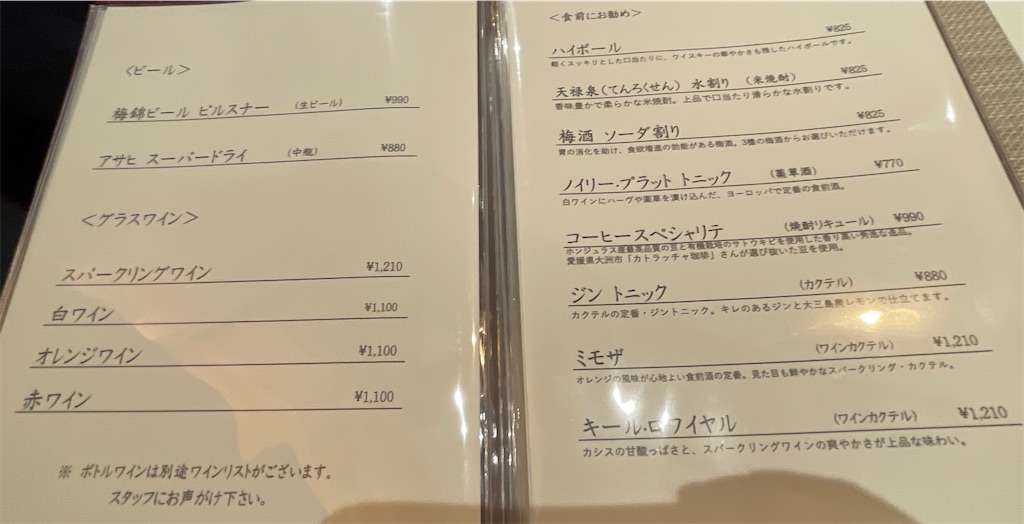 ＜ビール＞
梅錦ビール ピルスナー (生ビール) ¥990
アサヒ スーパードライ (中瓶) ¥880
＜グラスワイン＞
スパークリングワイン ¥1,210
白ワイン ¥1,100
オレンジワイン ¥1,100
赤ワイン ¥1,100
※ ボトルワインは別途ワインリストがございます。
スタッフにお声がけ下さい。
＜食前にお勧め＞
ハイボール ¥825
軽くスッキリとした口当たりに、ウイスキーの華やかさも残したハイボールです。
天禄泉(てんろくせん) 水割り (米焼酎) ¥825
香味豊かで柔らかな米焼酎。上品で口当たり滑らかな水割りです。
梅酒 ソーダ割り ¥825
胃の消化を助け、食欲増進の効能がある梅酒。3種の梅酒からお選びいただけます。
ノイリー・プラット トニック (薬草酒) ¥770
白ワインにハーヴや薬草を漬け込んだ、ヨーロッパで定番の食前酒。
コーヒースペシャリテ (焼酎リキュール) ¥990
ホンジュラス産最高品質の豆と有機栽培のサトウキビを使用した香り高い秀逸な逸品。
愛媛県大洲市「カトラッチャ珈琲」さんが選び抜いた豆を使用。
ジン トニック (カクテル) ¥880
カクテルの定番・ジントニック。キレのあるジンと大三島産レモンで仕立てます。
ミモザ (ワインカクテル) ¥1,210
オレンジの風味が心地よい食前酒の定番。見た目も鮮やかなスパークリング・カクテル。
キール・ロワイヤル (ワインカクテル) ¥1,210
カシスの甘酸っぱさと、スパークリングワインの爽やかさが上品な味わい。